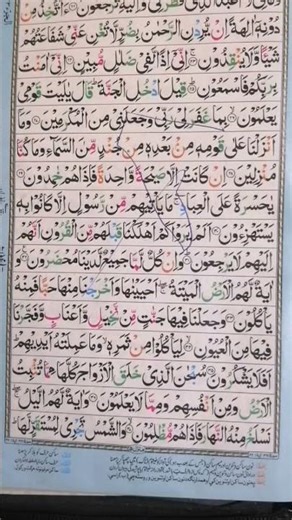 فَطَرَنِیْ وَاِلَیْهِ تُرْجَعُوْنَ ءَاَتَّخِذُ مِنْ
دُوْنِهٖۤ اٰلِهَةً اِنْ یُّرِدْنِ الرَّحْمٰنُ بِضُرٍّ لَّا تُغْنِ عَنِّیْ شَفَاعَتُهُمْ
شَیْـًٔا وَّلَا یُنْقِذُوْنِ اِنِّیْۤ اِذًا لَّفِیْ ضَلٰلٍ مُّبِیْنٍ اِنِّیْۤ اٰمَنْتُ
بِرَبِّكُمْ فَاسْمَعُوْنِ قِیْلَ ادْخُلِ الْجَنَّةَ قَالَ یٰلَیْتَ قَوْمِیْ
یَعْلَمُوْنَ بِمَا غَفَرَ لِیْ رَبِّیْ وَجَعَلَنِیْ مِنَ الْمُكْرَمِیْنَ وَمَاۤ
اَنْزَلْنَا عَلٰی قَوْمِهٖ مِنْۢ بَعْدِهٖ مِنْ جُنْدٍ مِّنَ السَّمَآءِ وَمَا كُنَّا
مُنْزِلِیْنَ اِنْ كَانَتْ اِلَّا صَیْحَةً وَّاحِدَةً فَاِذَا هُمْ خٰمِدُوْنَ
یٰحَسْرَةً عَلَی الْعِبَادِ مَا یَاْتِیْهِمْ مِّنْ رَّسُوْلٍ اِلَّا كَانُوْا بِهٖ
یَسْتَهْزِءُوْنَ اَلَمْ یَرَوْا كَمْ اَهْلَكْنَا قَبْلَهُمْ مِّنَ الْقُرُوْنِ اَنَّهُمْ
اِلَیْهِمْ لَا یَرْجِعُوْنَ وَاِنْ كُلٌّ لَّمَّا جَمِیْعٌ لَّدَیْنَا مُحْضَرُوْنَ وَ
اٰیَةٌ لَّهُمُ الْاَرْضُ الْمَیْتَةُ اَحْیَیْنٰهَا وَاَخْرَجْنَا مِنْهَا حَبًّا فَمِنْهُ
یَاْكُلُوْنَ وَجَعَلْنَا فِیْهَا جَنّٰتٍ مِّنْ نَّخِیْلٍ وَّاَعْنَابٍ وَّفَجَّرْنَا
فِیْهَا مِنَ الْعُیُوْنِ لِیَاْكُلُوْا مِنْ ثَمَرِهٖ وَمَا عَمِلَتْهُ اَیْدِیْهِمْ
اَفَلَا یَشْكُرُوْنَ سُبْحٰنَ الَّذِیْ خَلَقَ الْاَزْوَاجَ كُلَّهَا مِمَّا تُنْۢبِتُ
الْاَرْضُ وَمِنْ اَنْفُسِهِمْ وَمِمَّا لَا یَعْلَمُوْنَ وَاٰیَةٌ لَّهُمُ الَّیْلُ
نَسْلَخُ مِنْهُ النَّهَارَ فَاِذَا هُمْ مُّظْلِمُوْنَ وَالشَّمْسُ تَجْرِیْ لِمُسْتَقَرٍّ لَّهَا